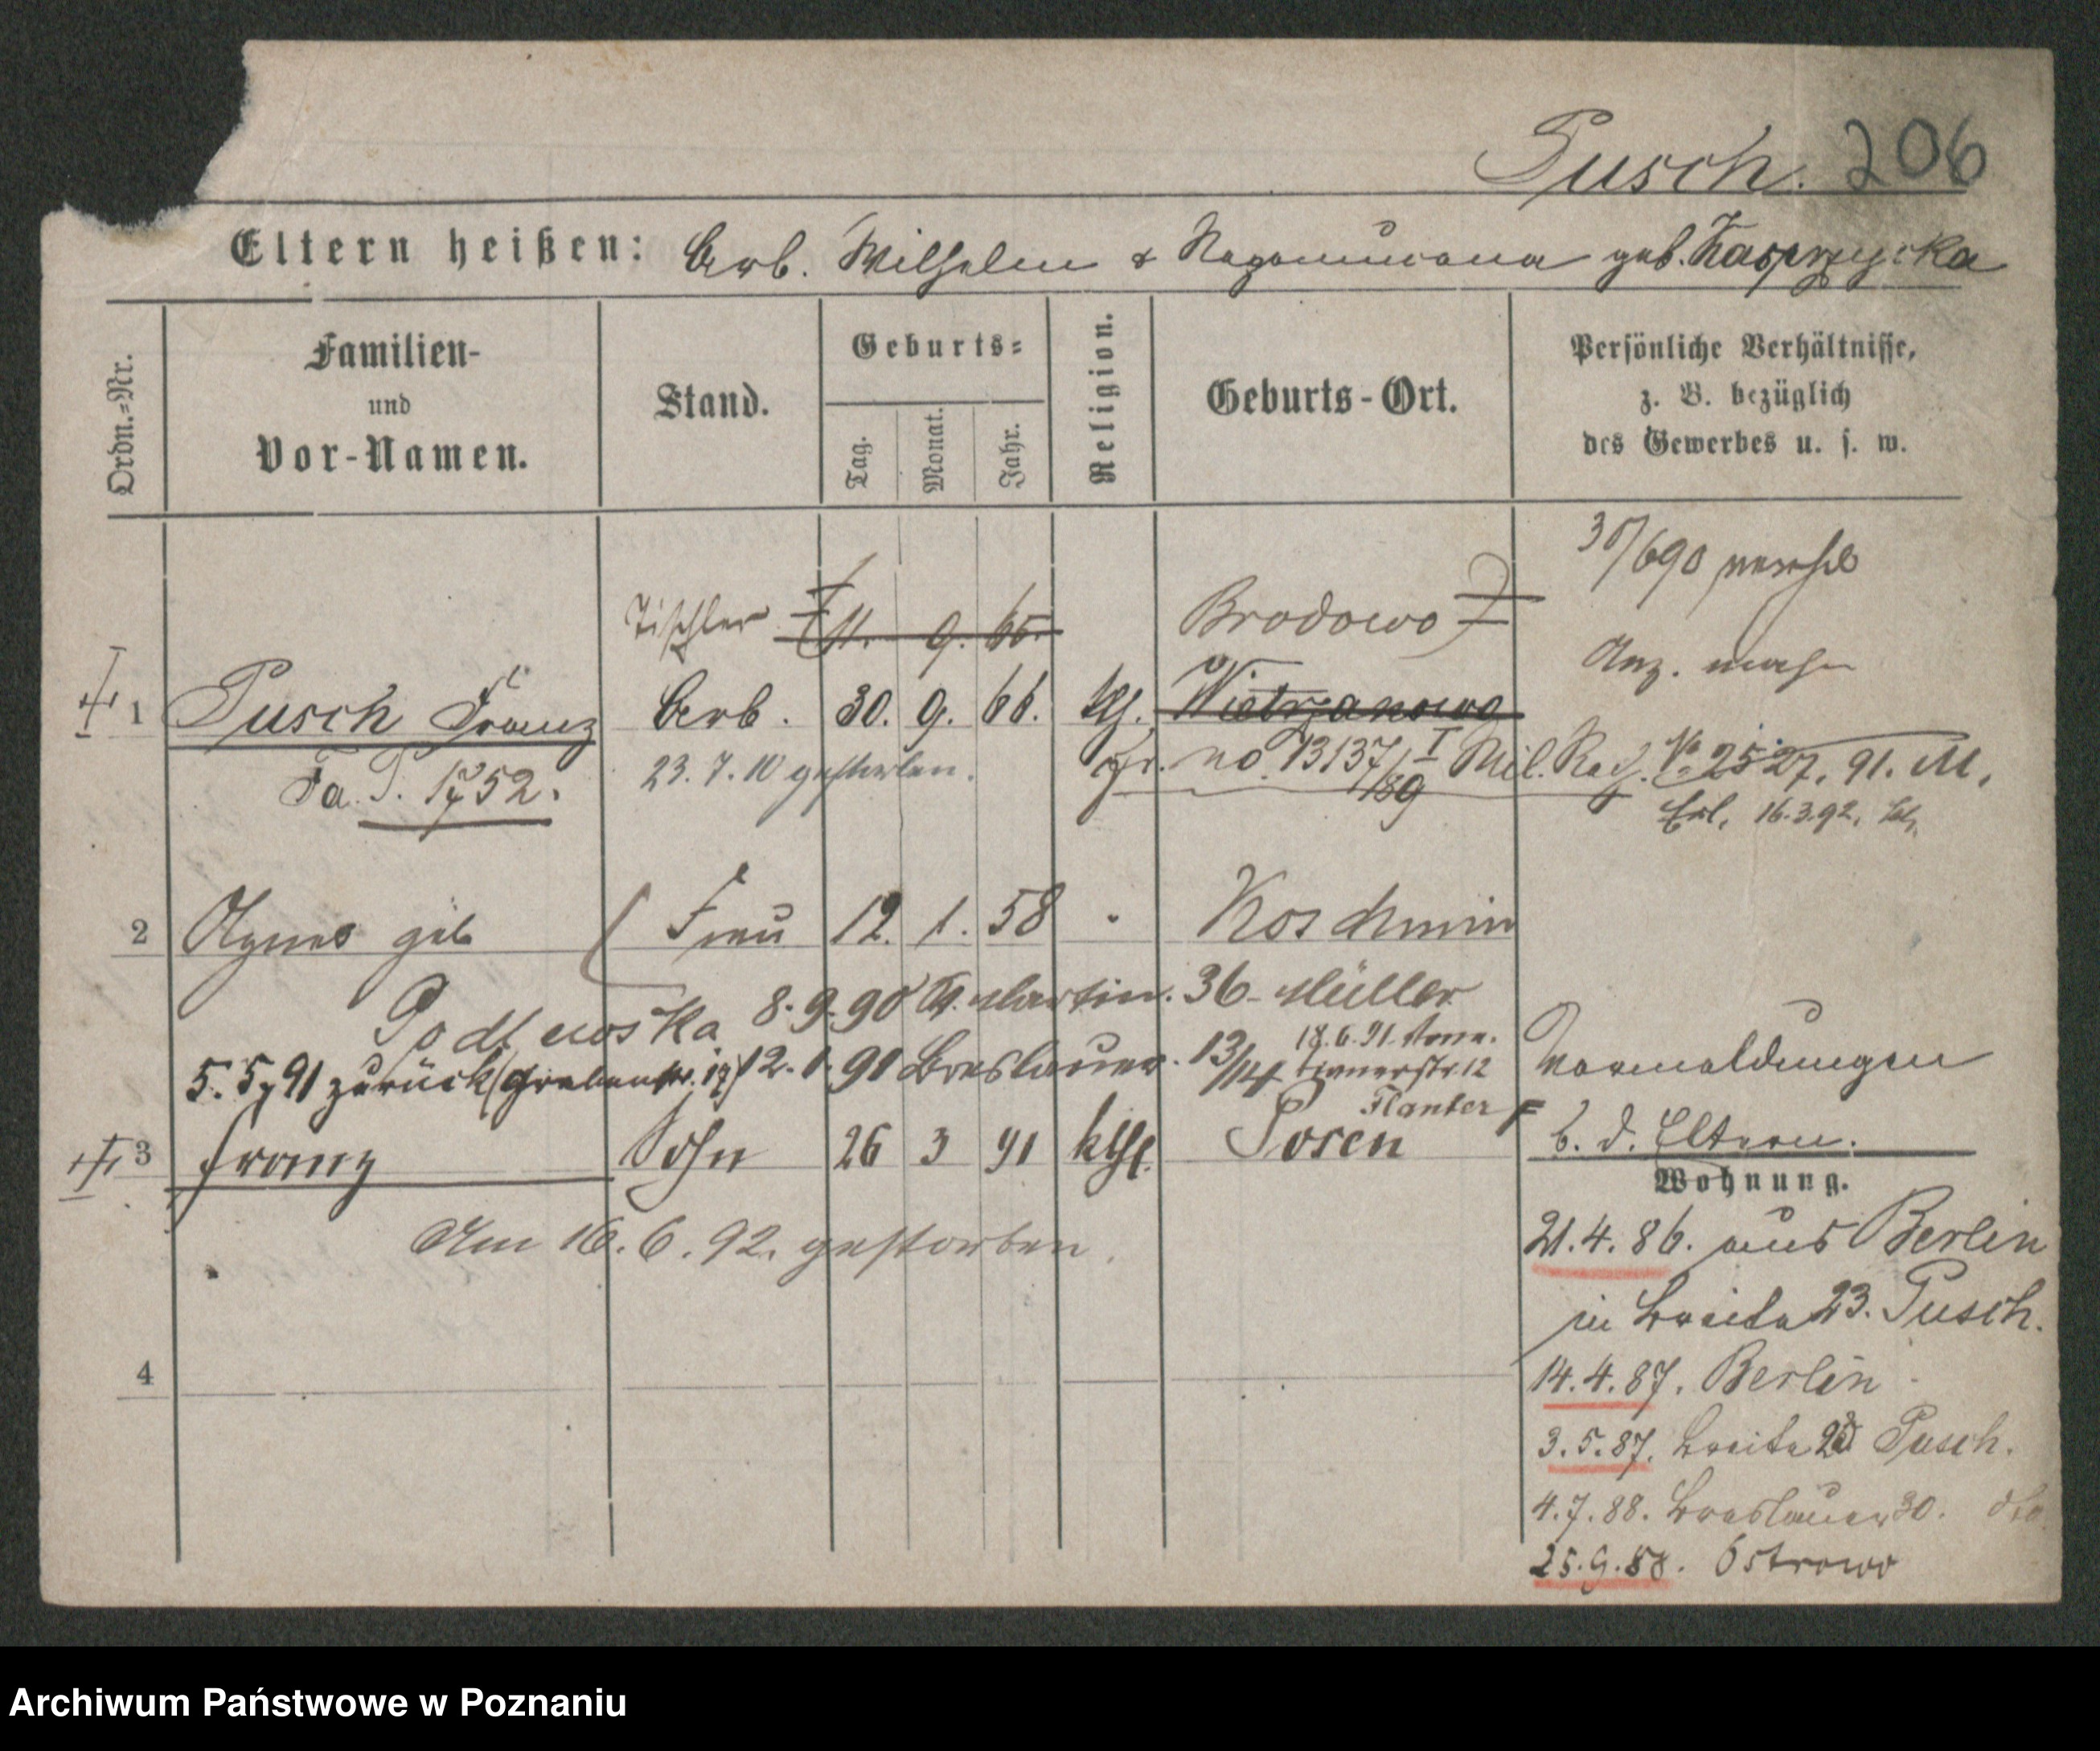 Pusch. 206
Eltern heißen: Arb. Wilhelm & geb. Kasprzycka
Ordn.=Nr.
Familien-
und
Vor-Namen.
Stand.
Geburts=
Tag.
Monat.
Jahr.
Religion.
Geburts-Ort.
Persönliche Verhältnisse,
z. B. bezüglich
des Gewerbes u. s. w.
Tischler 11. 9. 65. Brodowo
1 Pusch Franz Arb. 30. 9. 66. kth. Wietrzanowo
Anz.
Fa. P. 1752. 23. 7. 10 gestorben. no 13137/89 I Mil. No 2527. 91. M.
Erl. 16.3.92.
2 Agnes geb Frau 12. 1. 58 " Koschmin
8. 9. 90 St. Martin. 36 Müller
5. 5. 91 zurück (Grabenstr. 12. 1. 91 Breslauer. 13/14 18.6.91. 12
Vormeldungen
b. d. Eltern.
3 Franz Sohn 26 3 91 kth. Posen
Am 16. 6. 92. gestorben.
4
Wohnung.
21. 4. 86. aus Berlin
in Breite 23. Pusch.
14. 4. 87. Berlin
3. 5. 87. Breite Pusch.
4. 7. 88. Breslauer 30. dto
25. 9. 88. Ostrowo
Archiwum Państwowe w Poznaniu